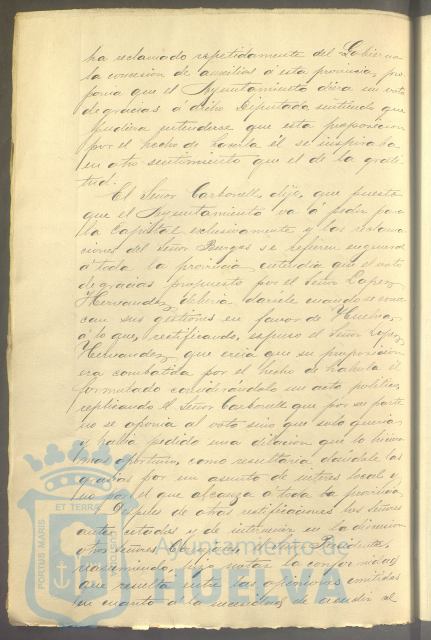 ha reclamado repetidamente del Gobierno
la concesion de auxilios á esta provincia, pro
ponia que el Ayuntamiento diera un voto
de gracias á dicho Diputado sintiendo que
pudiera entenderse que esta proposicion
por el hecho de hacerla él se inspiraba
en otro sentimiento que el de la grati
tud.
El Señor Carbonell, dijo, que puesto
que el Ayuntamiento va á pedir para
la Capital exclusivamente y las reclama
ciones del Señor Burgos se refieren en general
á toda la provincia, entendia que el voto
de gracias propuesto por el Señor Lopez
Hernandez, deberia darsele cuando se conoz
can sus gestiones en favor de Huelva;
á lo que, rectificando, repuso el Señor Lopez
Hernandez, que creia que su proposicion
era combatida por el hecho de haberla él
formulado considerándolo un acto politico,
replicando el Señor Carbonell que por su parte
no se oponia al voto sino que solo queria
y habia pedido una dilacion que lo hiciera
mas oportuno, como resultaria dándole las
gracias por un asunto de interes local y
no por el que alcanza á toda la provincia.
Despues de otras rectificaciones los Señores
antes citados y de intervenir en la discusion
otros Señores Capitulares, el Presidente,
resumiendo, hizo notar la conformidad
que resulta entre las opiniones emitidas
en cuanto á la necesidad de acudir al
PORTUS MARIS ET TERRÆ CUSTODIA
Ayuntamiento de
HUELVA